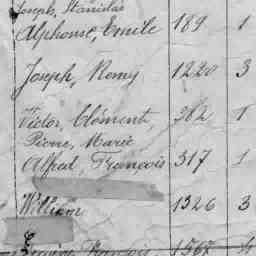 Joseph, Stanislas
Alphonse, Emile 189 1
Joseph, Remy 1220 3
Victor, Clément, 382 1
Pierre, Marie
Alfred, François 317 1
William 1326 3
1367